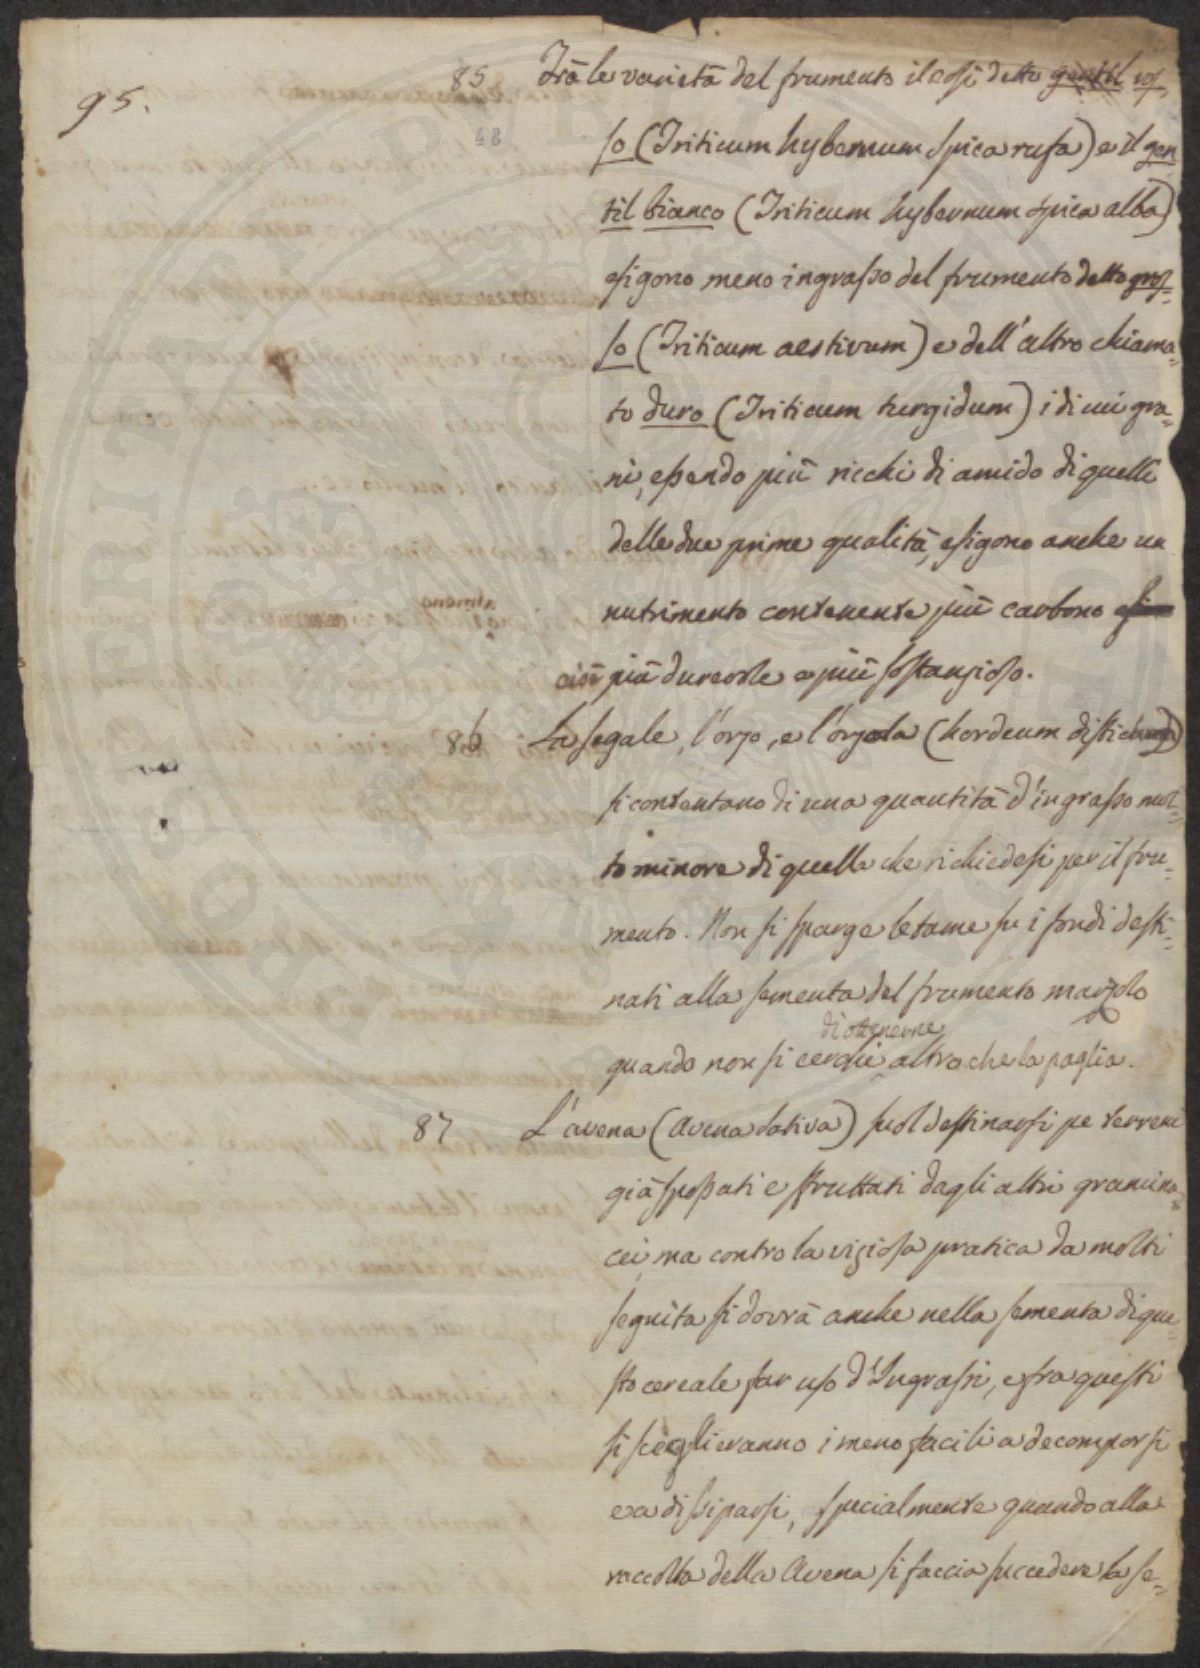 95.
85 Trà le varietà del frumento il così detto gentil ros,
48
so (Triticum hybernum spica rufa) e il gen
til bianco (Triticum hybernum spica alba)
esigono meno ingrasso del frumento detto gros=
so (Triticum aestivum) e dell'altro chiama=
to duro (Triticum turgidum) i di cui gra=
ni, essendo più ricchi di amido di quelli
delle due prime qualità, esigono anche un
nutrimento contenente più carbono
cioè più durevole e più sostanzioso.
86 La segale, l'orzo, e l'orzola (hordeum distichum)
si contentano di una quantità d'ingrasso mol=
to minore di quella che richiedesi per il fru=
mento. Non si sparge letame su i fondi desti=
nati alla sementa del frumento marzolo
di ottenerne
quando non si cerchi altro che la paglia.
87 L'avena (Avena sativa) suol destinarsi pe terreni
già spossati e sfruttati dagli altri gramina=
cei, ma contro la viziosa pratica da molti
seguita si dovrà anche nella sementa di que=
sto cereale far uso d'Ingrassi, e fra questi
si sceglieranno i meno facili a decomporsi
e a dissiparsi, specialmente quando alla
raccolta della Avena si faccia succedere la se=